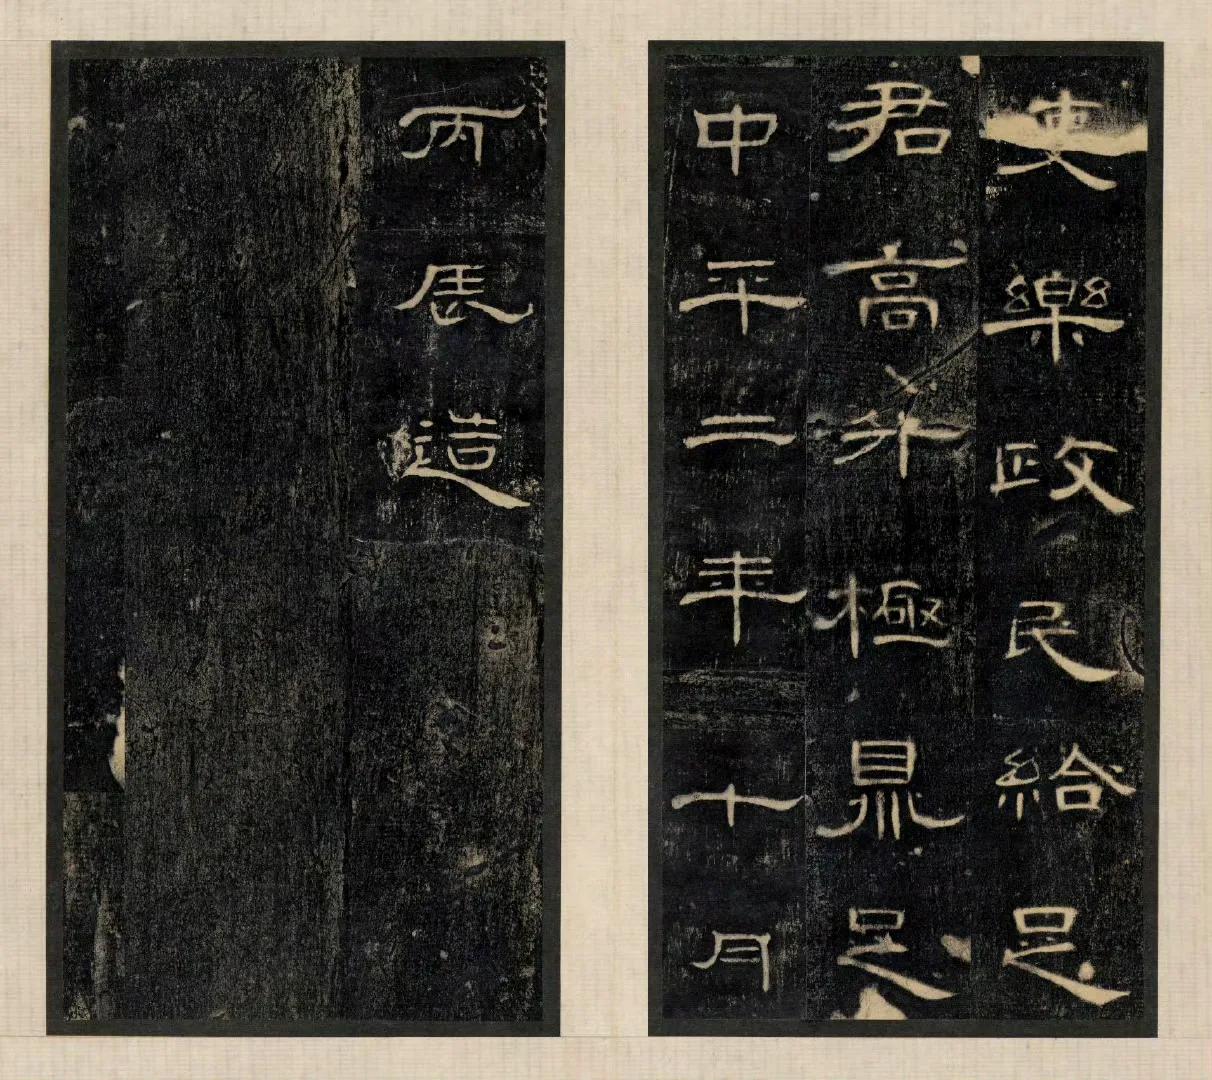 吏樂政民給足
君高升極鼎足
中平二年十月
丙辰造